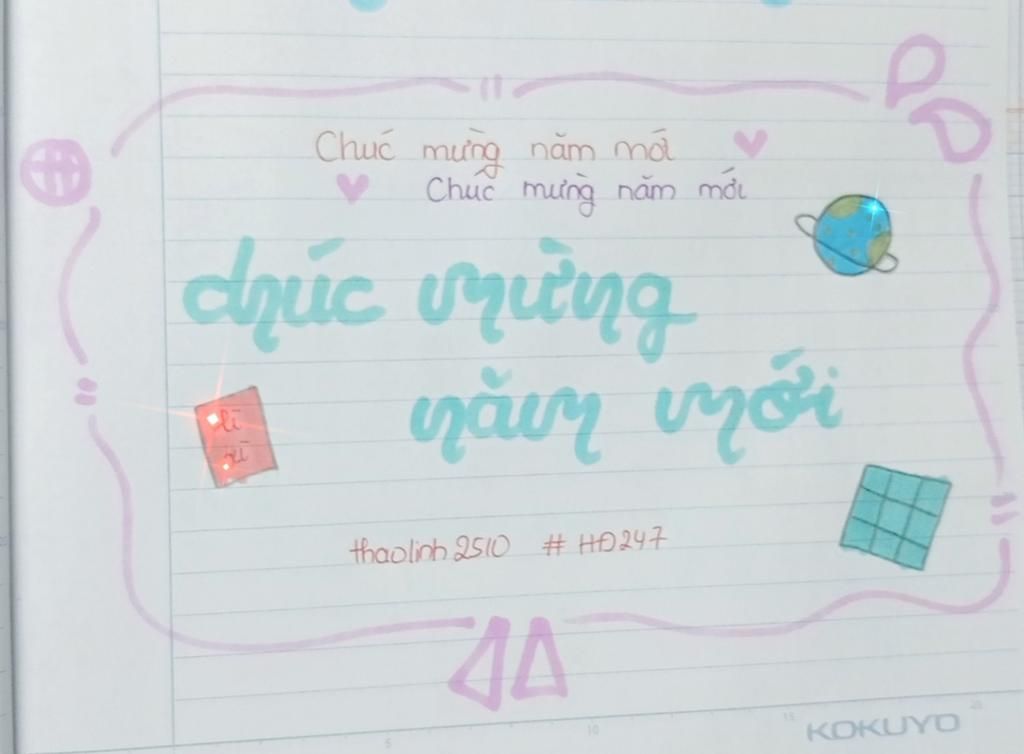 Chúc mừng năm mới
Chúc mừng năm mới
chúc mừng
năm mới
lì
xì
thaolinh2510 # HĐ247
5 10 15 20
KOKUYO